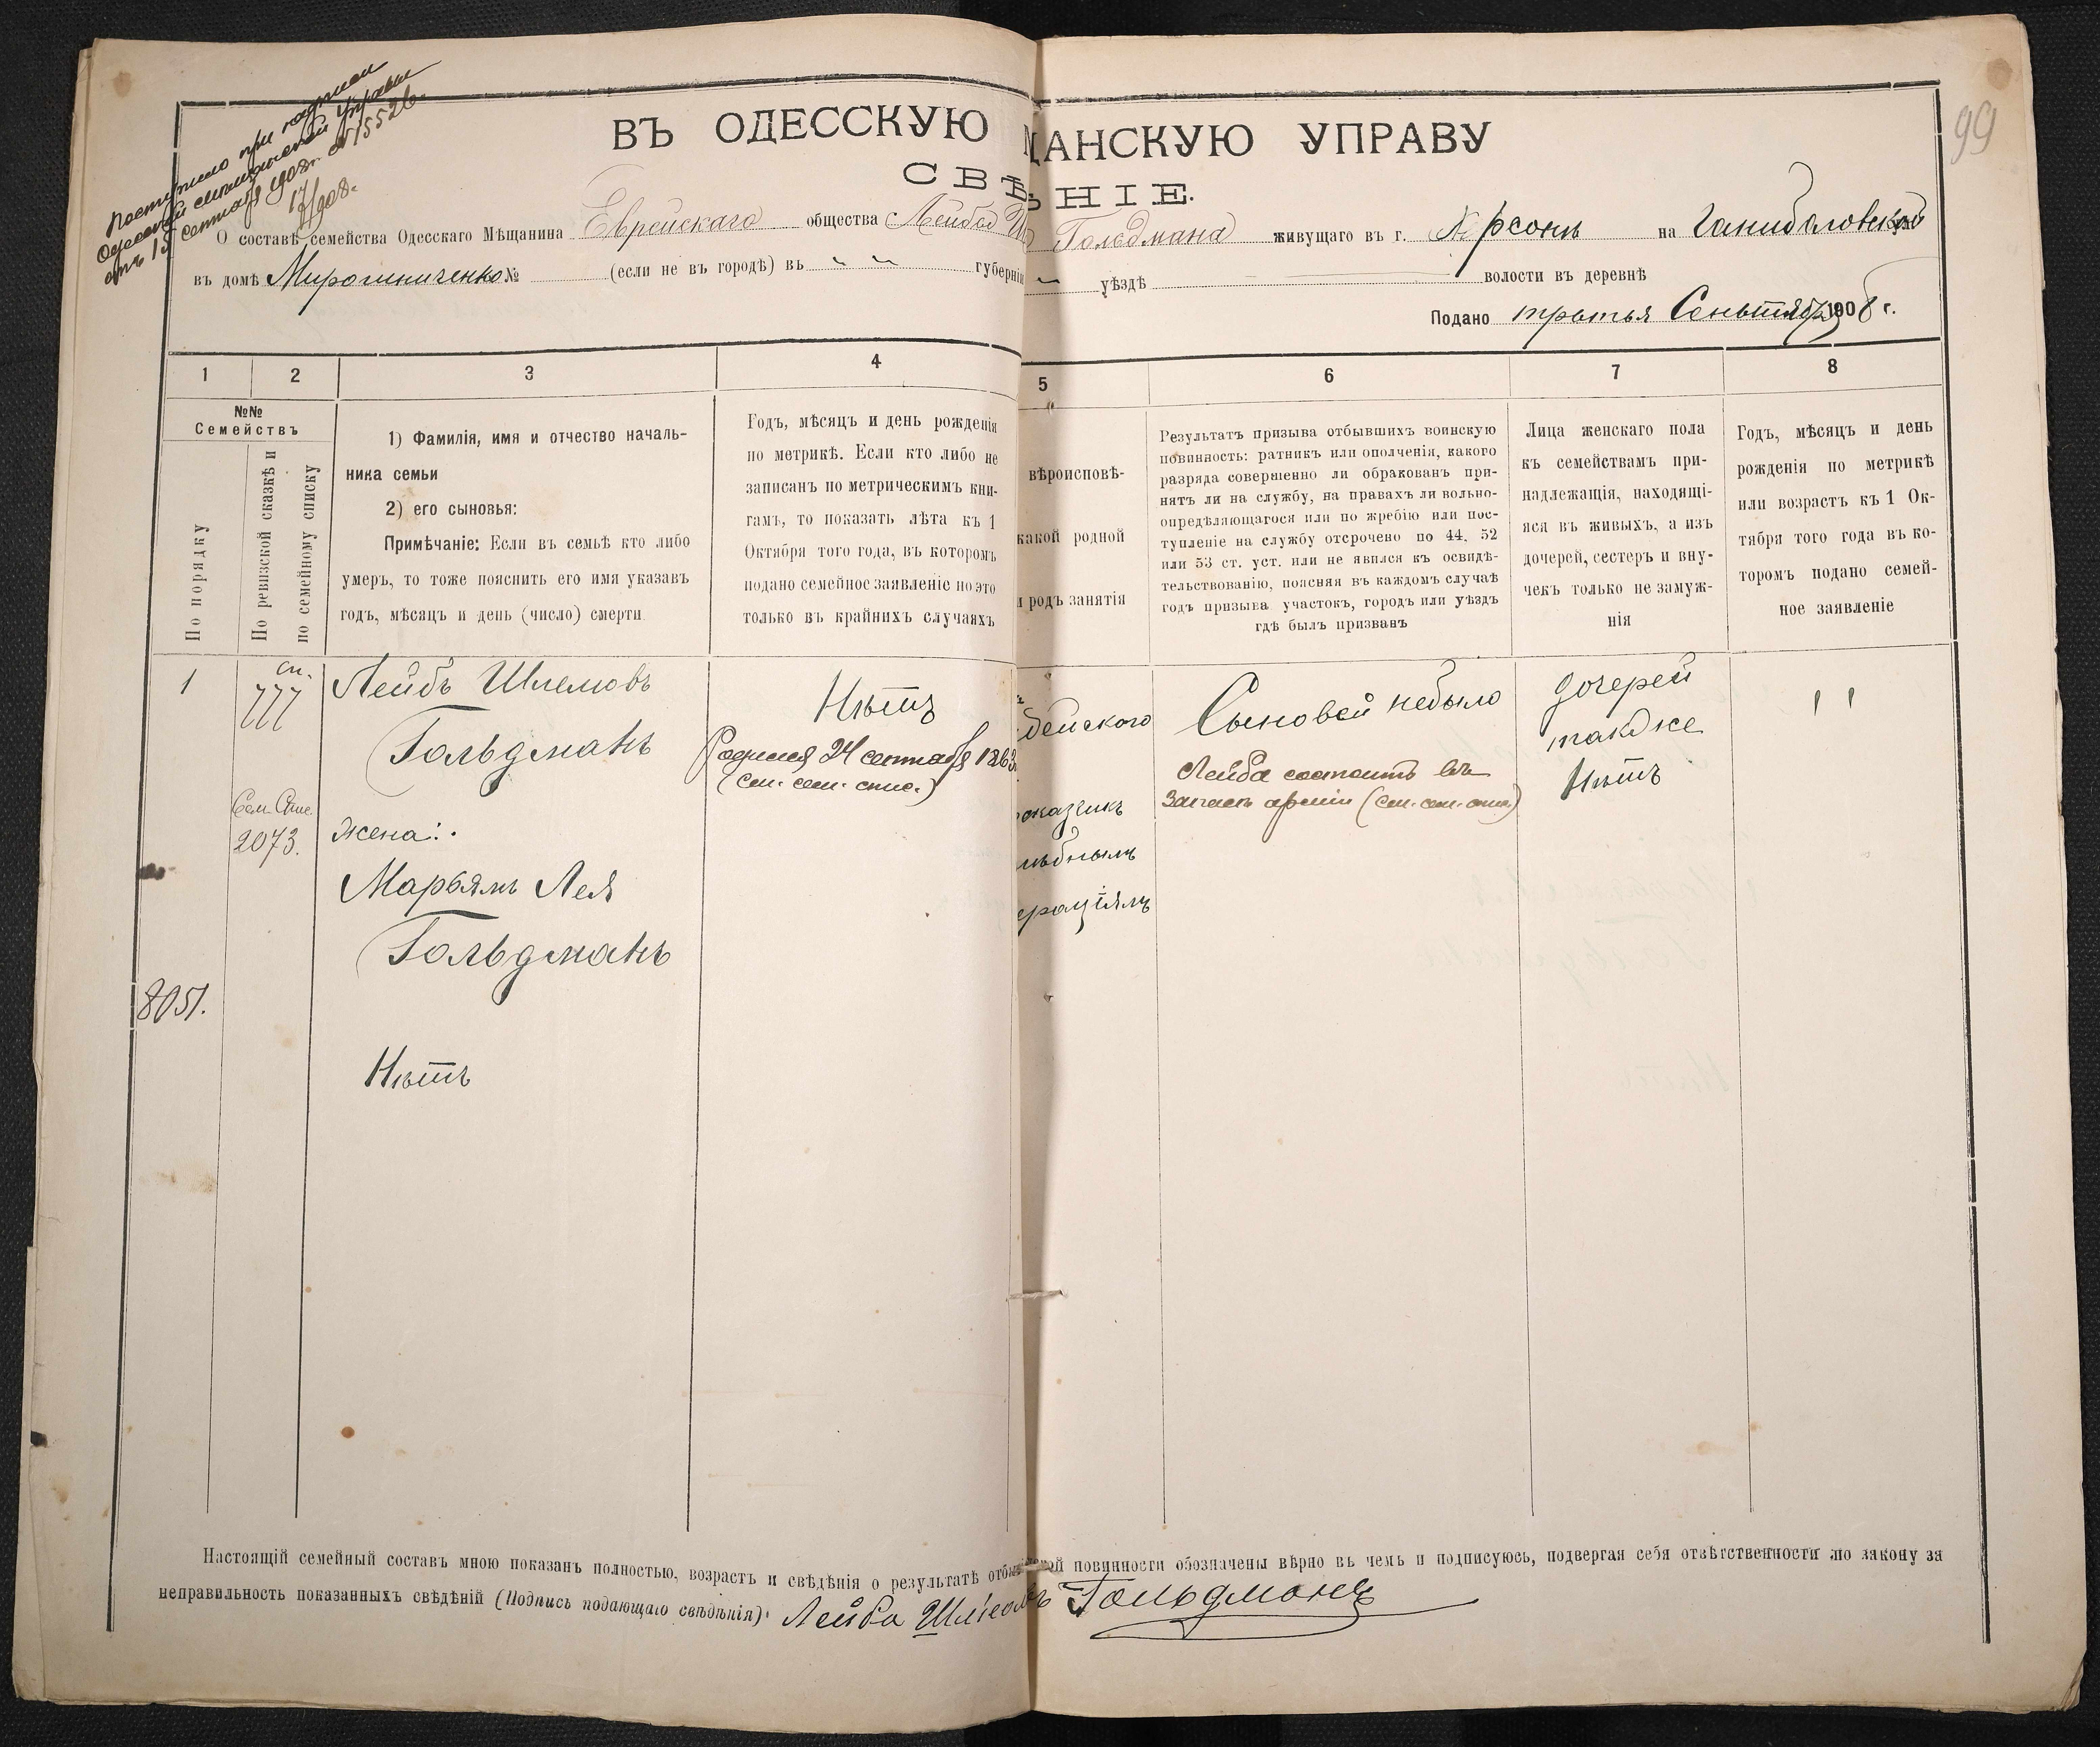 Поступило при надписи
Одесской мещанской Управы
отъ 15 сентября 1908г. № 15526.
17/908.
99
ВЪ ОДЕССКУЮ ЩАНСКУЮ УПРАВУ
СВѢ НІЕ.
О составѣ семейства Одесскаго Мѣщанина Еврейскаго общества Лейба Гольдмана живущаго въ г. Херсонъ на Ганибаловской
въ домѣ Мирошниченко № (если не въ городѣ) въ " " губерніи " уѣздѣ волости въ деревнѣ
Подано третья Сеньтября 1908 г.
1 2 3 4 5 6 7 8
№№
Семействъ
По порядку
По ревизской сказкѣ и
по семейному списку
1) Фамилія, имя и отчество началь-
ника семьи
2) его сыновья:
Примѣчаніе: Если въ семьѣ кто либо
умеръ, то тоже пояснить его имя указавъ
годъ, мѣсяцъ и день (число) смерти
Годъ, мѣсяцъ и день рожденія
по метрикѣ. Если кто либо не
записанъ по метрическимъ кни-
гамъ, то показать лѣта къ 1
Октября того года, въ которомъ
подано семейное заявленіе но это
только въ крайнихъ случаяхъ
вѣроисповѣ-
какой родной
и родъ занятія
Результатъ призыва отбывшихъ воинскую
повинность: ратникъ или ополченія, какого
разряда совершенно ли обракованъ при-
нятъ ли на службу, на правахъ ли вольно-
опредѣляющагося или по жребію или пос-
тупленіе на службу отсрочено по 44, 52
или 53 ст. уст. или не явился къ освидѣ-
тельствованію, поясняя въ каждомъ случаѣ
годъ призыва участокъ, городъ или уѣздъ
гдѣ былъ призванъ
Лица женскаго пола
къ семействамъ при-
надлежащія, находящі-
яся въ живыхъ, а изъ
дочерей, сестеръ и вну-
чекъ только не замуж-
нія
Годъ, мѣсяцъ и день
рожденія по метрикѣ
или возрастъ къ 1 Ок-
тября того года въ ко-
торомъ подано семей-
ное заявленіе
1
сп.
777
Сем. Спис.
2073.
8051.
Лейбъ Шлемовъ
Гольдманъ
жена:
Марьямъ Лея
Гольдманъ
Нѣтъ
Нѣтъ
Родился 24 сентября 1863г.
(см. сем. спис.)
дейского
оказчик
лѣбнымъ
ераціямъ
Сыновей небыло
Лейба состоитъ въ
запасѣ арміи (см. сем. спис.)
дочерей
также
Нѣтъ
" "
Настоящій семейный составъ мною показанъ полностью, возрастъ и свѣдѣнія о результатѣ отбы ской повинности обозначены вѣрно въ чемъ и подписуюсь, подвергая себя отвѣтственности по закону за
неправильность показанныхъ свѣдѣній (Подпись подающаго свѣдѣнія): Лейба Шлемовъ Гольдманъ